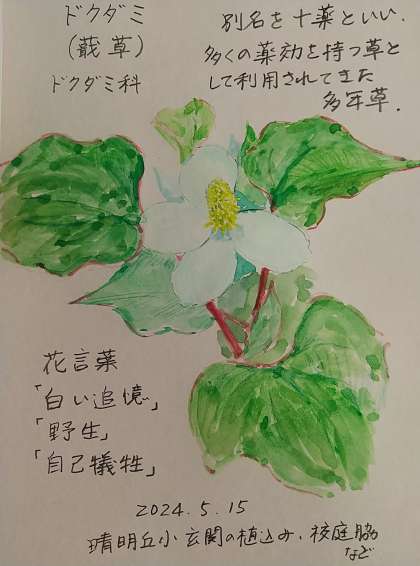 ドクダミ
(蕺草)
ドクダミ科
別名を十薬といい.
多くの薬効を持つ草と
して利用されてきた
多年草.
花言葉
「白い追憶」
「野生」
「自己犠牲」
2024.5.15
晴明丘小 玄関の植込み、校庭脇
など